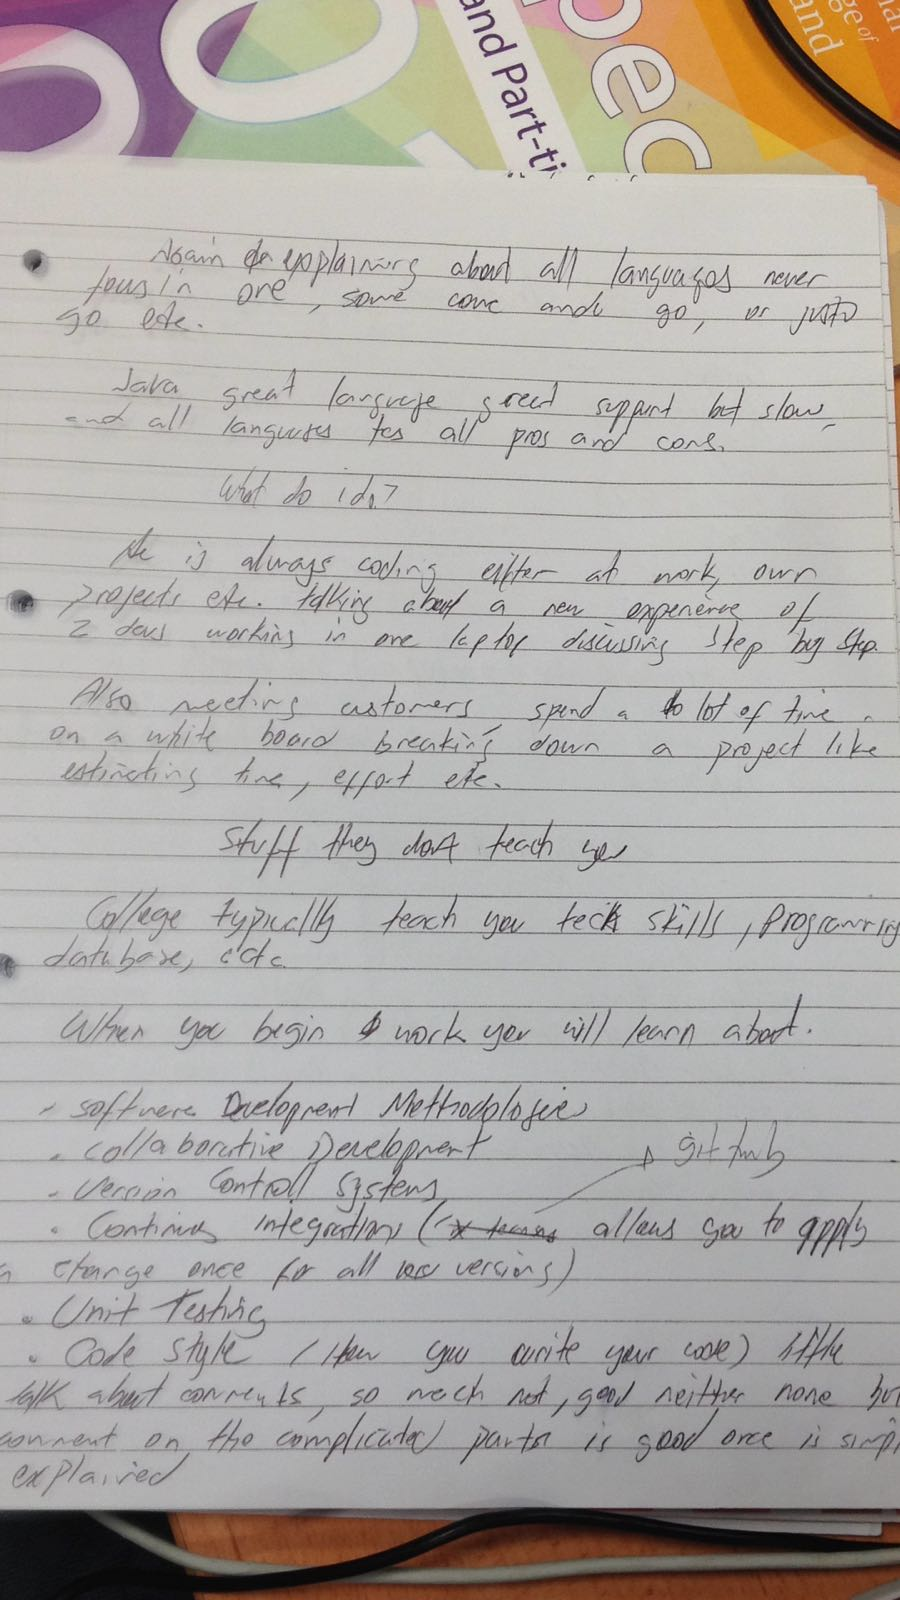 pec
and Part-ti
ge of
and
Again explaining about all languages never
focus in one, some come and go, or just
go etc.
Java great language great support but slow,
and all languages has all pros and cons.
What do i do?
He is always coding either at work, own
projects etc. talking about a new experience of
2 days working in one laptop discussing step by step.
Also meeting customers, spend a lot of time
on a white board breaking down a project like
estimating time, effort etc.
Stuff they dont teach you
College typically teach you tech skills, programming
database, etc.
When you begin work you will learn about.
- software Development Methodologies
. collaborative Development
github
. Version Controll Systems
. Continus integrations ( allows you to apply
a change once for all versions)
. Unit Testing
. Code Style (How you write your code) little
talk about comments, so much not, good neither none but
comment on the complicated parts is good once is simpl
explained